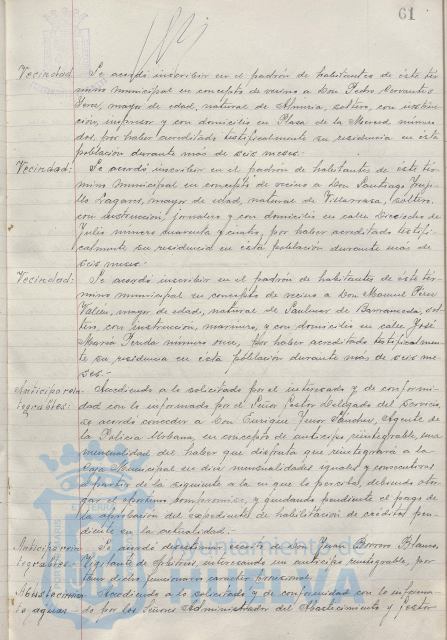 61
Vecindad: Se acordó inscribir en el padrón de habitantes de éste tér-
mino municipal en concepto de vecino a Don Pedro Cervantes
mayor de edad, natural de Almería, soltero, con instruc-
ción, impresor y con domicilio en Plaza de la Merced número
dos, por haber acreditado testificalmente su residencia en ésta
población durante más de seis meses.
Vecindad: Se acordó inscribir en el padrón de habitantes de éste tér-
mino municipal en concepto de vecino a Don Santiago Truji-
llo Lagares, mayor de edad, natural de Villarrasa, soltero,
con instrucción, jornalero y con domicilio en calle Dieciocho de
Julio número cuarenta y cuatro, por haber acreditado testifi-
calmente su residencia en ésta población durante más de
seis meses.
Vecindad: Se acordó inscribir en el padrón de habitantes de éste tér-
mino municipal en concepto de vecino a Don Manuel Pérez
mayor de edad, natural de Sanlucar de Barrameda, sol-
tero, con instrucción, marinero, y con domicilio en calle José
María número once, por haber acreditado testificalmen-
te su residencia en ésta población durante más de seis me-
ses.-
Anticipos rein- Accediendo a lo solicitado por el interesado y de conformi-
tegrables: dad con lo informado por el Señor Gestor Delegado del Servicio,
se acordó conceder a Don Enrique Sánchez, Agente de
la Policía Urbana, en concepto de anticipo reintegrable, una
mensualidad del haber que disfruta que reintegrará a la
Caja Municipal en diez mensualidades iguales y consecutivas
a partir de la siguiente a la en que lo perciba, debiendo otor-
gar el oportuno compromiso, y quedando pendiente el pago de
la aprobación del expediente de habilitación de créditos pen-
diente en la actualidad.-
Anticipos rein- Se acordó desestimar escrito de Don Borrero Blanco,
tegrables: Vigilante de Arbitrios, interesando un anticipo reintegrable, por
tener dicho funcionario caracter provisional.
Accediendo a lo solicitado y de conformidad con lo informa-
aguas: do por los Señores Administrador del Abastecimiento y Gestor
Ayuntamiento de
HUELVA